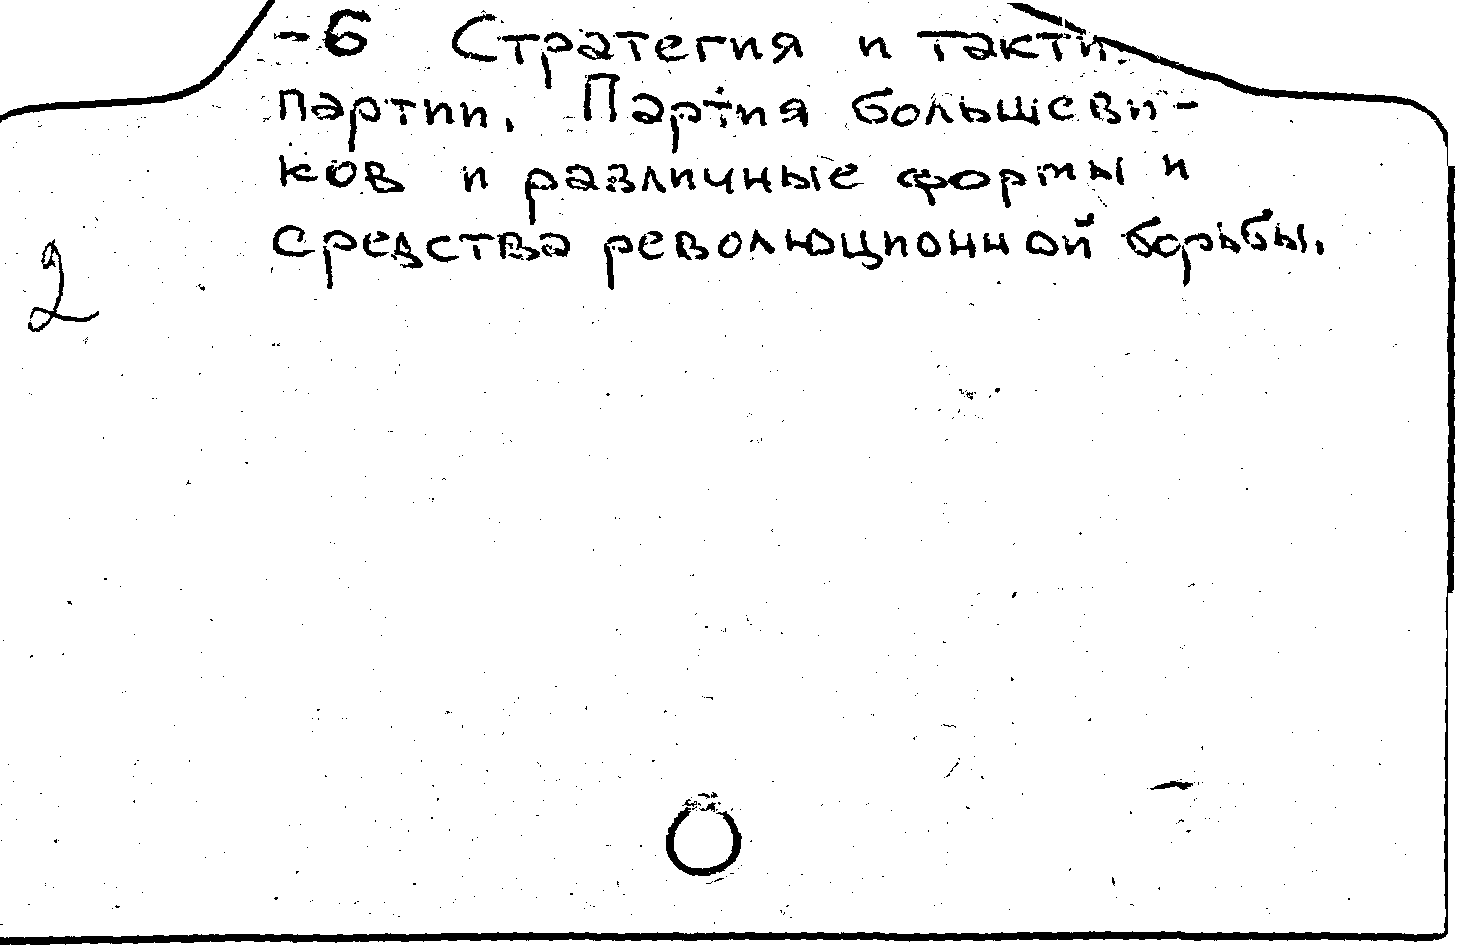 -6 Стратегия и такти
партии. Партия большеви-
ков и различные формы и
средства революционной борьбы.
2